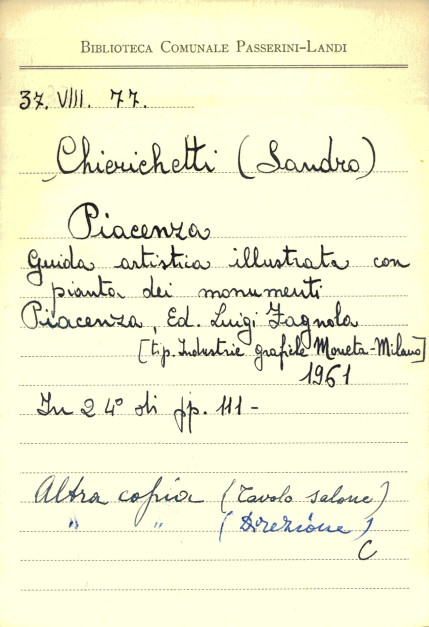 BIBLIOTECA COMUNALE PASSERINI-LANDI
37. VIII. 77.
Chierichetti (Sandro)
Piacenza
Guida artistica illustrata con
pianta dei monumenti
Piacenza, Ed. Luigi Fagnola
[tip. Industrie grafiche Moneta-Milano]
1961
In 24° di pp. 111 -
Altra copia (Tavolo salone)
" " (Direzione)
C